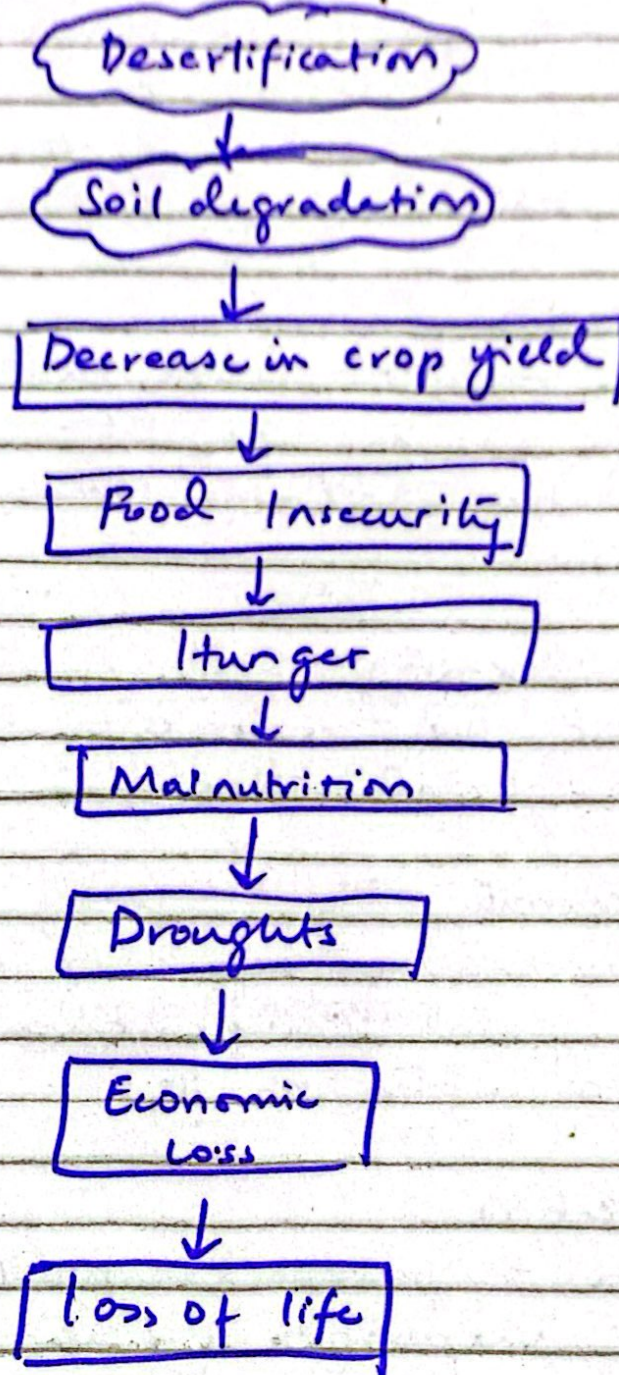 Desertification
Soil degradation
Decrease in crop yield
Food Insecurity
Hunger
Malnutrition
Droughts
Economic
Loss
Loss of life